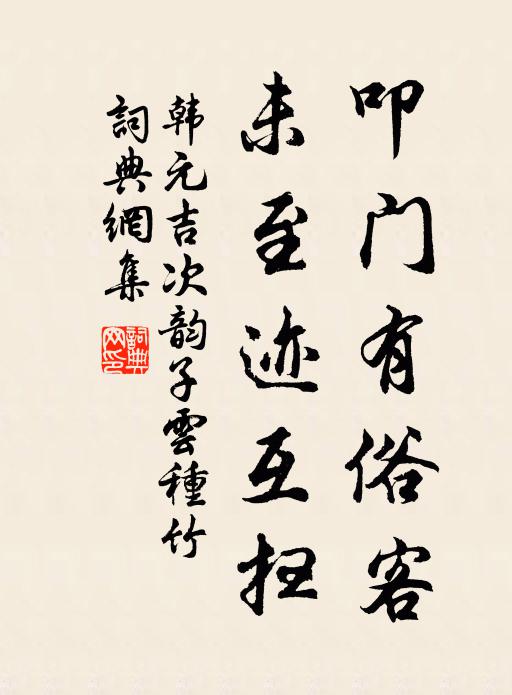 叩门有俗客
未至迹互扫
韩元吉次韵子雲種竹
詞典網集
詞典网印